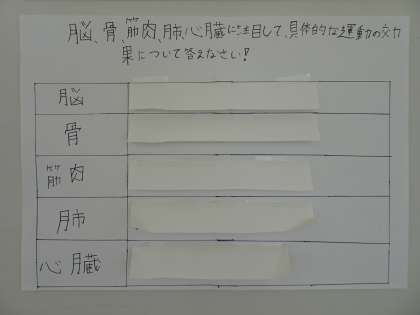 脳、骨、筋肉、肺、心臓に注目して、具体的な運動の効
果について答えなさい!
脳
骨
筋肉
肺
心臓